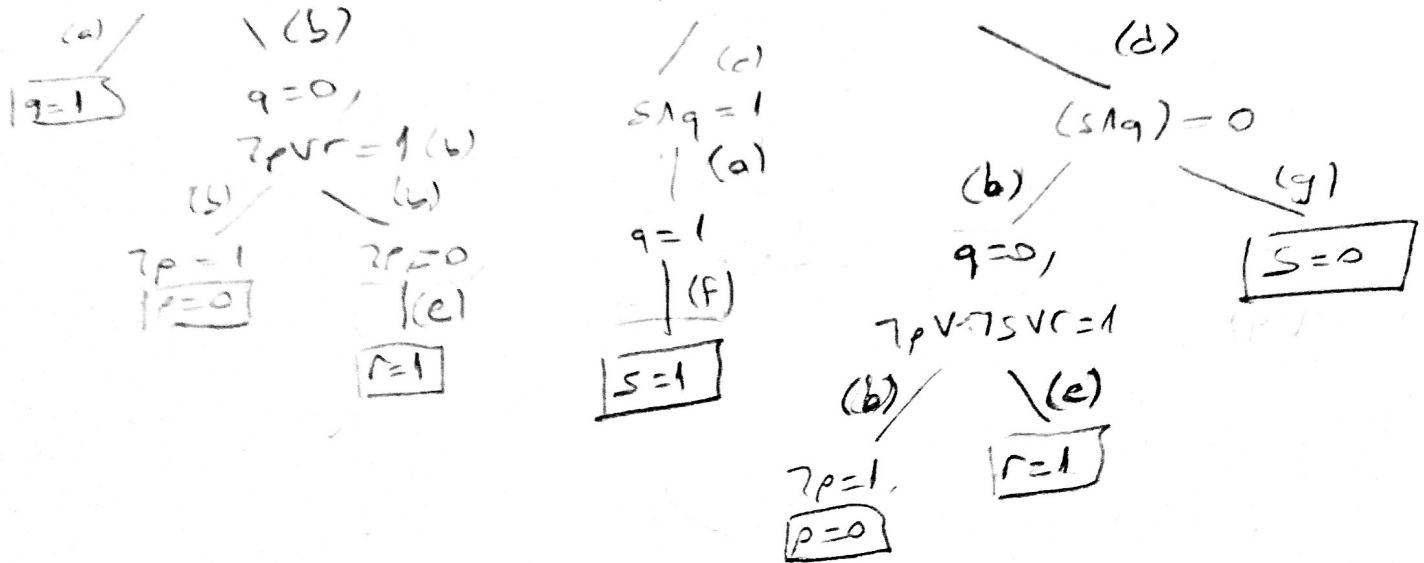 (a) (b)
q=1 q=0,
¬p∨r=1 (b)
(b) (b)
¬p=1 ¬p=0
p=0 (e)
r=1
(c)
s∧q=1
(a)
q=1
(f)
s=1
(d)
(s∧q)=0
(b) (g)
q=0, s=0
¬p∨¬s∨r=1
(b) (e)
¬p=1, r=1
p=0